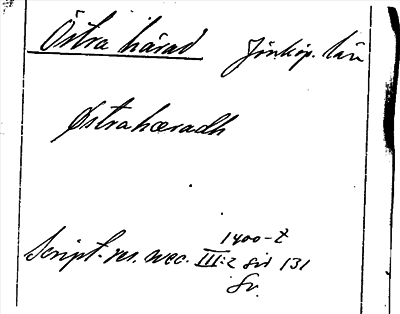 Östra härad Jönköp. län
Østrahæradh
1400-t
Script. rer. svec. III:2 sid 131
Gr.